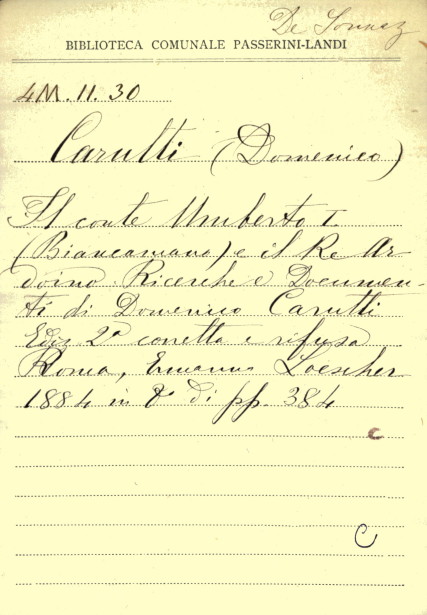 De Sonnaz
BIBLIOTECA COMUNALE PASSERINI-LANDI
4M.11.30
Carutti (Domenico)
Il conte Umberto I
(Biancamano) e il Re Ar-
doino Ricerche e Documen-
ti di Domenico Carutti
Ediz 2ª corretta e rifusa
Roma, Ermanno Loescher
1884 in 8° di pp. 384
C
C